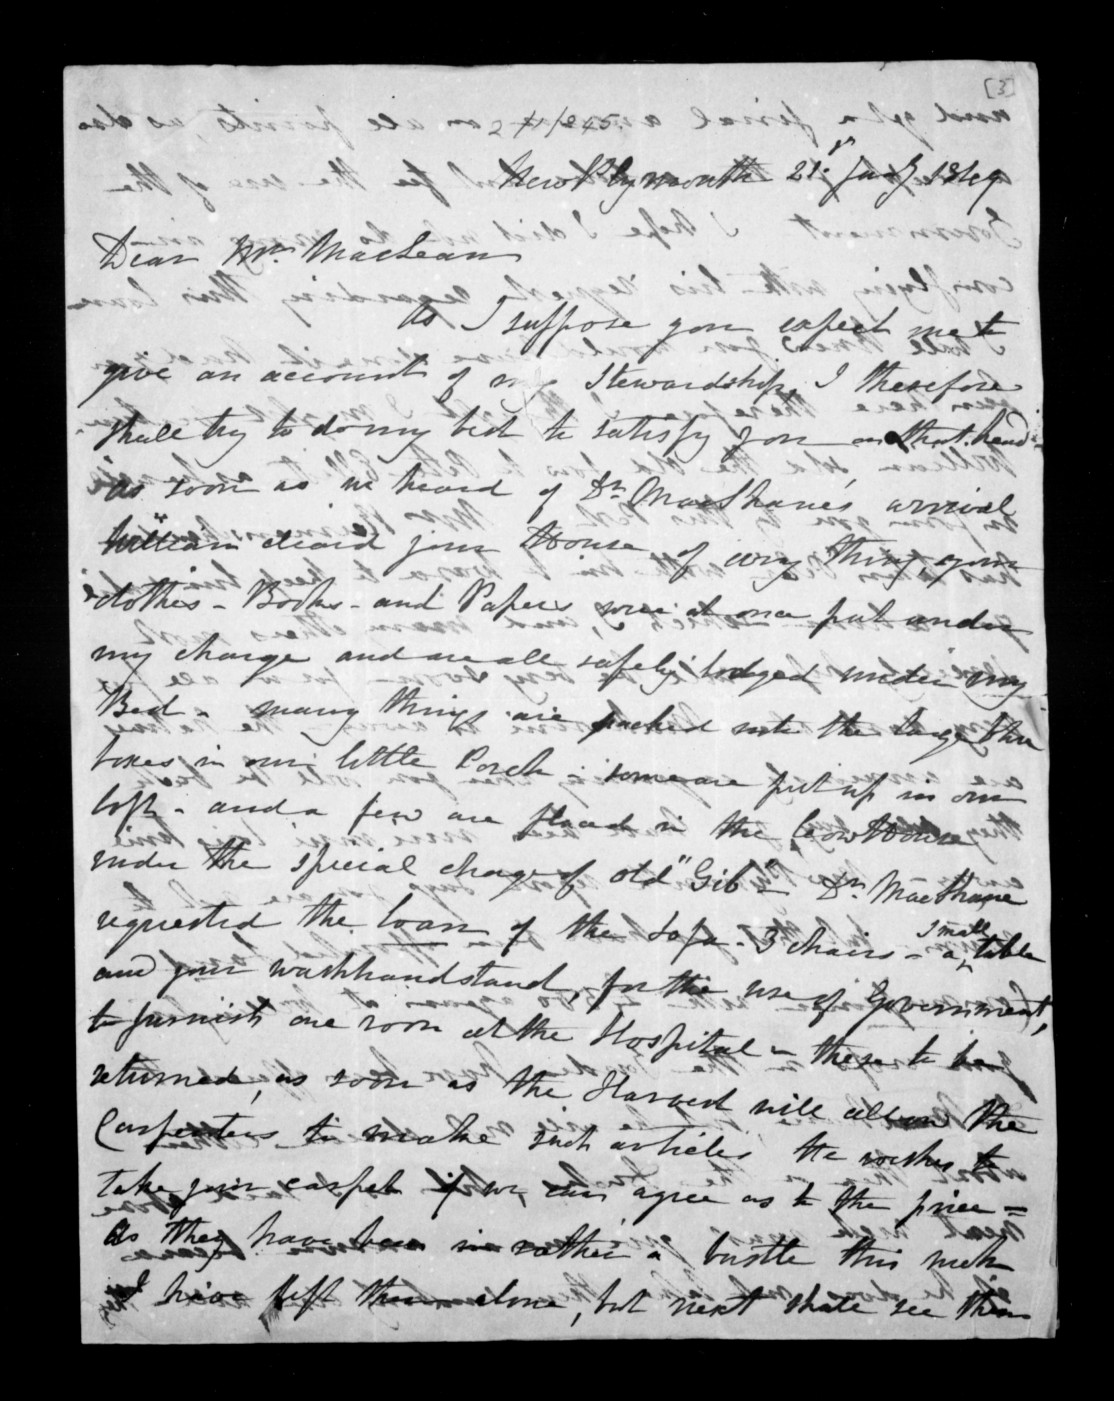 [3]
New Plymouth 21st Jany 1849
Dear Mr. MacLean
As I suppose you expect me to
give an account of my Stewardship, I therefore
shall try to do my best to satisfy you on that head.
as soon as we heard of Dr MacShane's arrival
"William" cleard your House of every thing your
clothes - Books - and Papers were at once put under
my charge and are all safely lodged under my
Bed - many things are packed into the large
boxes in our little Porch - some are put up in our
loft - and a few are placed in the Cow House
under the special charge of old "Gib" - Dr. MacShane
requested the loan of the Sofa - 3 chairs - a small table
and your washhandstand, for the use of Government,
to furnish one room at the Hospital - these to be
returned, as soon as the Harvest will allow the
Carpenters to make such articles He wishes to
take your carpet if we can agree as to the price =
As they have been in rather a bustle this week
I have left them alone, but next shall see them